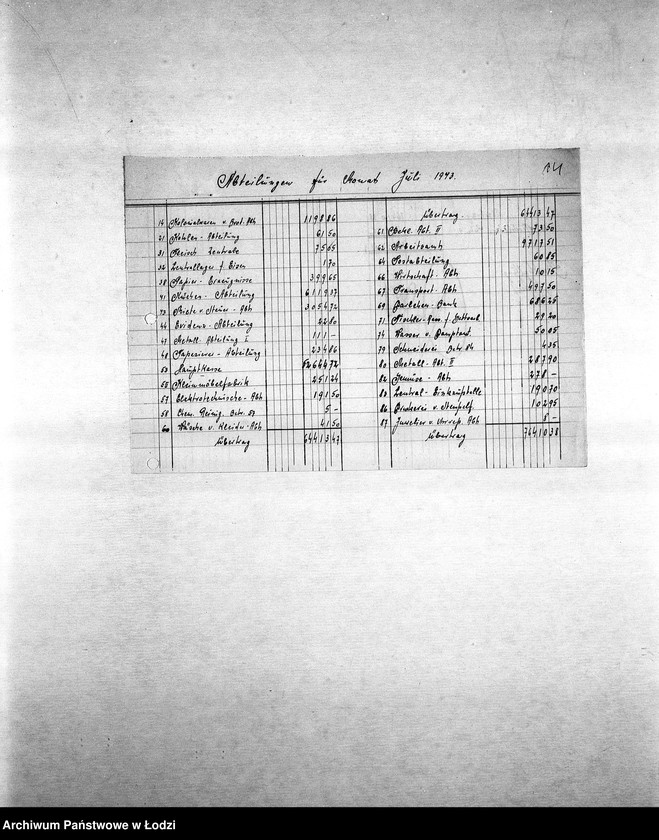 Abteilungen für Monat Juli 1943.
14 Kolonialwaren u. Brot Abt 1198 86
21 Kohlen-Abteilung 61 50
31 Fleisch Zentrale 75 05
36 Zentrallager f. Eisen 1 70
38 Papier-Erzeugnisse 399 65
41 Küchen-Abteilung 6119 37
43 Miete u Steuer-Abt 3054 72
44 Evidenz-Abteilung 22 80
47 Metall Abteilung I 111 -
48 Tapezierer-Abteilung 234 86
50 Hauptkasse 52644 72
55 Kleinmöbelfabrik 251 24
57 Elektrotechnische-Abt 191 50
58 Chem. Reinig. Betr. 5 -
60 Wäsche u. Kleider-Abt 41 50
Übertrag 64413 47
Übertrag 64413 47
61 Metal. Abt. II 73 50
62 Arbeitsamt 9717 51
64 Postabteilung 60 85
66 Wirtschaft-Abt 10 15
67 Transport-Abt 497 50
69 Darlehen-Bank 686 25
71 29 20
74 Wasser u. 50 05
79 Schneiderei Betr. 4 35
80 Metall-Abt. II 287 90
82 Gemüse-Abt 278 -
83 Zentral-Einkaufstelle 190 70
86 Druckerei u. Stempelf. 102 95
87 Juwelier u. Uhrrep. Abt. 8 -
Übertrag 76410 38
Archiwum Państwowe w Łodzi